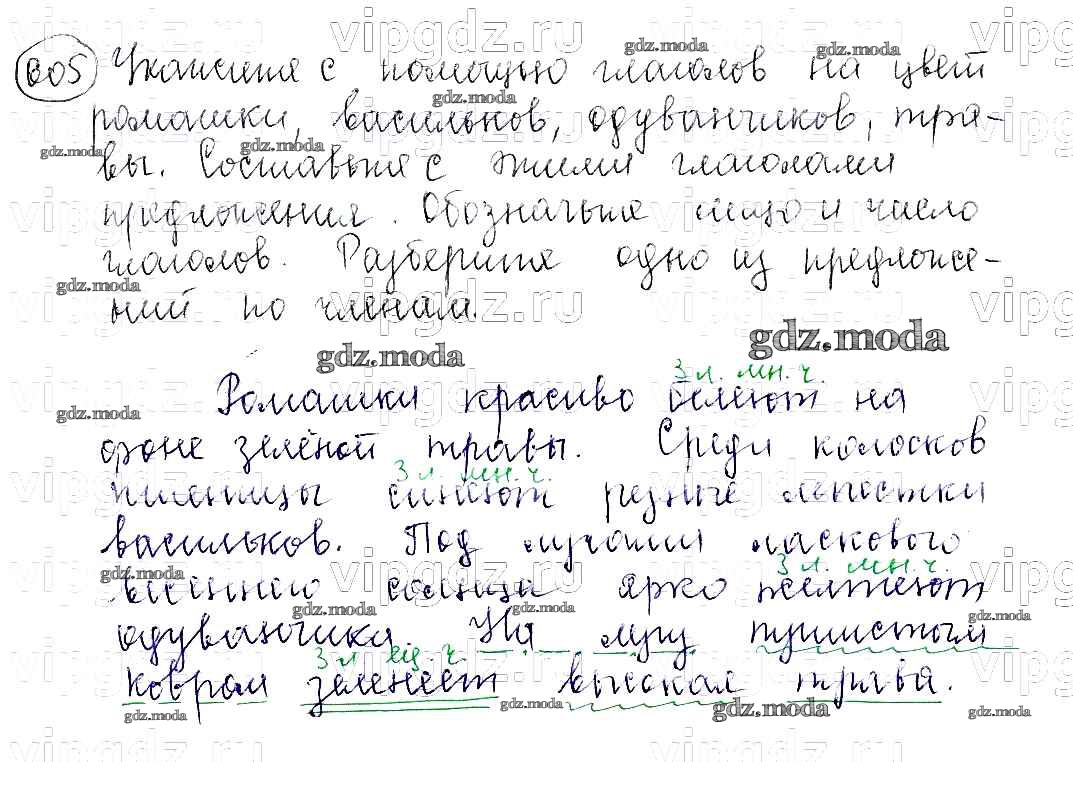 605 Укажите с помощью глаголов на цвет
ромашки, васильков, одуванчиков, тра-
вы. Составьте с этими глаголами
предложения. Обозначьте лицо и число
глаголов. Разберите одно из предложе-
ний по членам.
3 л. мн. ч.
Ромашки красиво белеют на
фоне зелёной травы. Среди колосков
3 л. мн. ч.
пшеницы синеют резные лепестки
васильков. Под лучами ласкового
3 л. мн. ч.
весеннего солнца ярко желтеют
одуванчики. На лугу пушистым
3 л. ед. ч.
ковром зеленеет высокая трава.
vipgdz.ru
gdz.moda